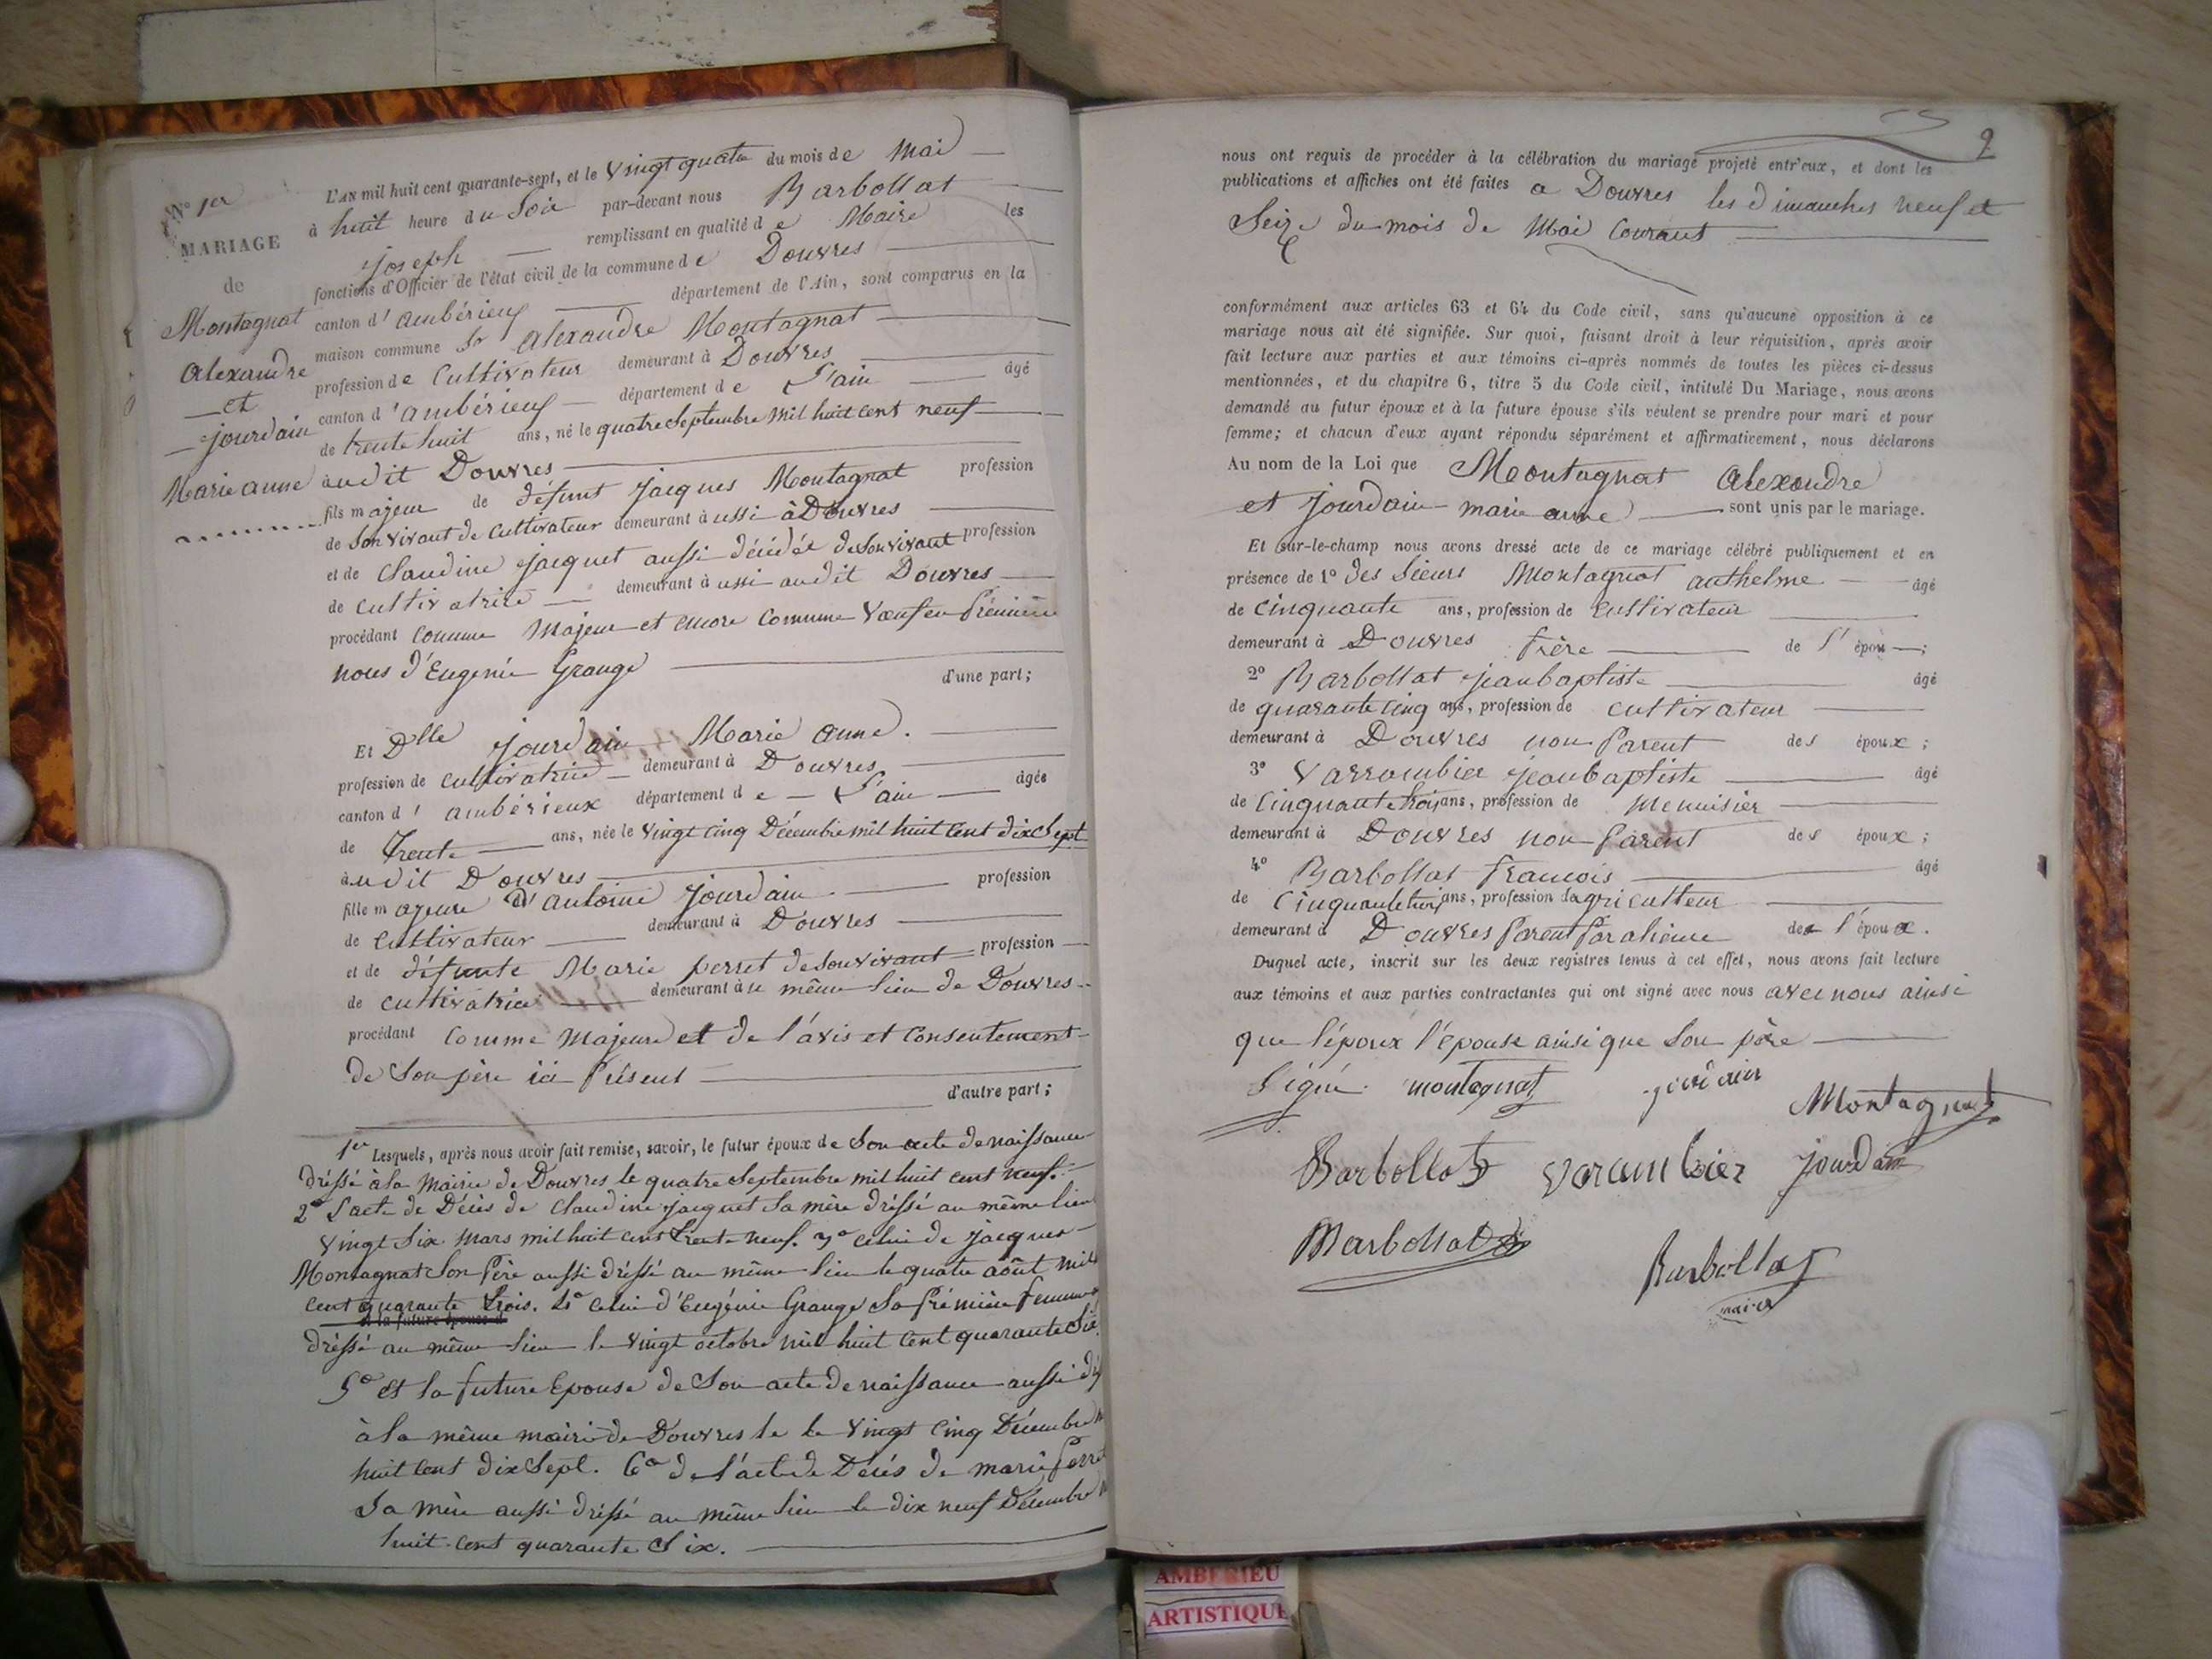 N° 1er
MARIAGE
de
Montagnat
Alexandre
et
jourdain
Marie anne
L'AN mil huit cent quarante-sept, et le vingt quatre du mois de Mai
à huit heure du Soir par-devant nous Barbollat
joseph remplissant en qualité de Maire les
fonctions d'Officier de l'état civil de la commune de Douvres
canton d'ambérieux département de l'Ain, sont comparus en la
maison commune Sr alexandre Montagnat
profession de Cultivateur demeurant à Douvres
canton d'ambérieux département de L'ain âgé
de trente huit ans, né le quatre Septembre mil huit cent neuf
audit Douvres
fils majeur de défunt jacques Montagnat profession
de Son vivant de Cultivateur demeurant aussi à Douvres
et de Claudine jacquet aussi décédée de Son vivant profession
de cultivatrice demeurant aussi audit Douvres
procédant comme Majeur et encore Comme Vœuf en Prémière
nous d'Eugenie Grange d'une part;
Et Dlle jourdain Marie anne.
profession de cultivatrice demeurant à Douvres
canton d'ambérieux département de L'ain âgée
de Trente ans, née le vingt cinq Décembre mil huit cent dix Sept
audit Douvres
fille majeure d'antoine jourdain profession
de Cultivateur demeurant à Douvres
et de défunte Marie perret de Son vivant profession
de cultivatrice demeurant au même lieu de Douvres
procédant Comme Majeure et de l'avis et Consentement
de Son père ici Présent d'autre part;
1er Lesquels, après nous avoir fait remise, savoir, le futur époux de Son acte de naissance
dréssé à la Mairie de Douvres le quatre Septembre mil huit cent neuf.
2° L'acte de Décès de Claudine jacquet Sa mère dréssé au même lieu
vingt Six Mars mil huit cent trente neuf. 3° celui de jacques
Montagnat Son Père aussi dréssé au même lieu le quatre août mil
cent quarante trois. 4° celui d'Eugénie Grange Sa Prémière femme
et la future épouse d
dréssé au même lieu le vingt octobre mil huit Cent quarante Six.
5° et la future Epouse de Son acte de naissance aussi
à la même mairie de Douvres le le vingt cinq Décembre
huit Cent dix Sept. 6° de l'acte de Décés de marie Perret
Sa mère aussi dréssé au même lieu le dix neuf Décembre
huit cent quarante Six.
2
nous ont requis de procéder à la célébration du mariage projeté entr'eux, et dont les
publications et affiches ont été faites a Douvres les dimanches neuf et
Seize du mois de Mai Courant
conformément aux articles 63 et 64 du Code civil, sans qu'aucune opposition à ce
mariage nous ait été signifiée. Sur quoi, faisant droit à leur réquisition, après avoir
fait lecture aux parties et aux témoins ci-après nommés de toutes les pièces ci-dessus
mentionnées, et du chapitre 6, titre 5 du Code civil, intitulé Du Mariage, nous avons
demandé au futur époux et à la future épouse s'ils veulent se prendre pour mari et pour
femme; et chacun d'eux ayant répondu séparément et affirmativement, nous déclarons
Au nom de la Loi que Montagnat Alexandre
et jourdain marie anne sont unis par le mariage.
Et sur-le-champ nous avons dressé acte de ce mariage célébré publiquement et en
présence de 1° des Sieurs Montagnat anthelme âgé
de cinquante ans, profession de cultivateur
demeurant à Douvres frère de l'épou ;
2° Barbollat jeanbaptiste âgé
de quarante cinq ans, profession de cultivateur
demeurant à Douvres non Parent des époux;
3° Varrombier jeanbaptiste âgé
de Cinquante trois ans, profession de Menuisier
demeurant à Douvres non Parent des époux;
4° Barbollat francois âgé
de Cinquante trois ans, profession dagriculteur
demeurant à Douvres Parent de l'épou .
Duquel acte, inscrit sur les deux registres tenus à cet effet, nous avons fait lecture
aux témoins et aux parties contractantes qui ont signé avec nous avec nous ainsi
que l'époux l'épouse ainsi que Son père
Signé. montagnat jourdain Montagnat
Barbollat varambier jourdain
Barbollat Barbollat
maire
AMBERIEU
ARTISTIQUE